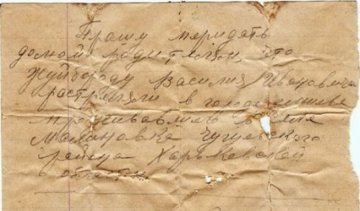 Прошу передать
домой родителям, что
Жуйгороду Василия Ивановича
растреляли в
проживавшего с
Малиновка Чугуевского
района Харьковской
области